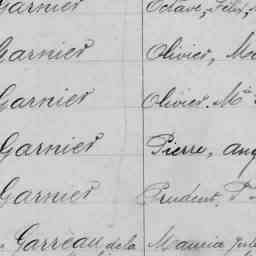 Garnier Octave, Félix,
Garnier Olivier,
Garnier Olivier. M
Garnier Pierre,
Garnier Prudent,
Garreau de la Maurice